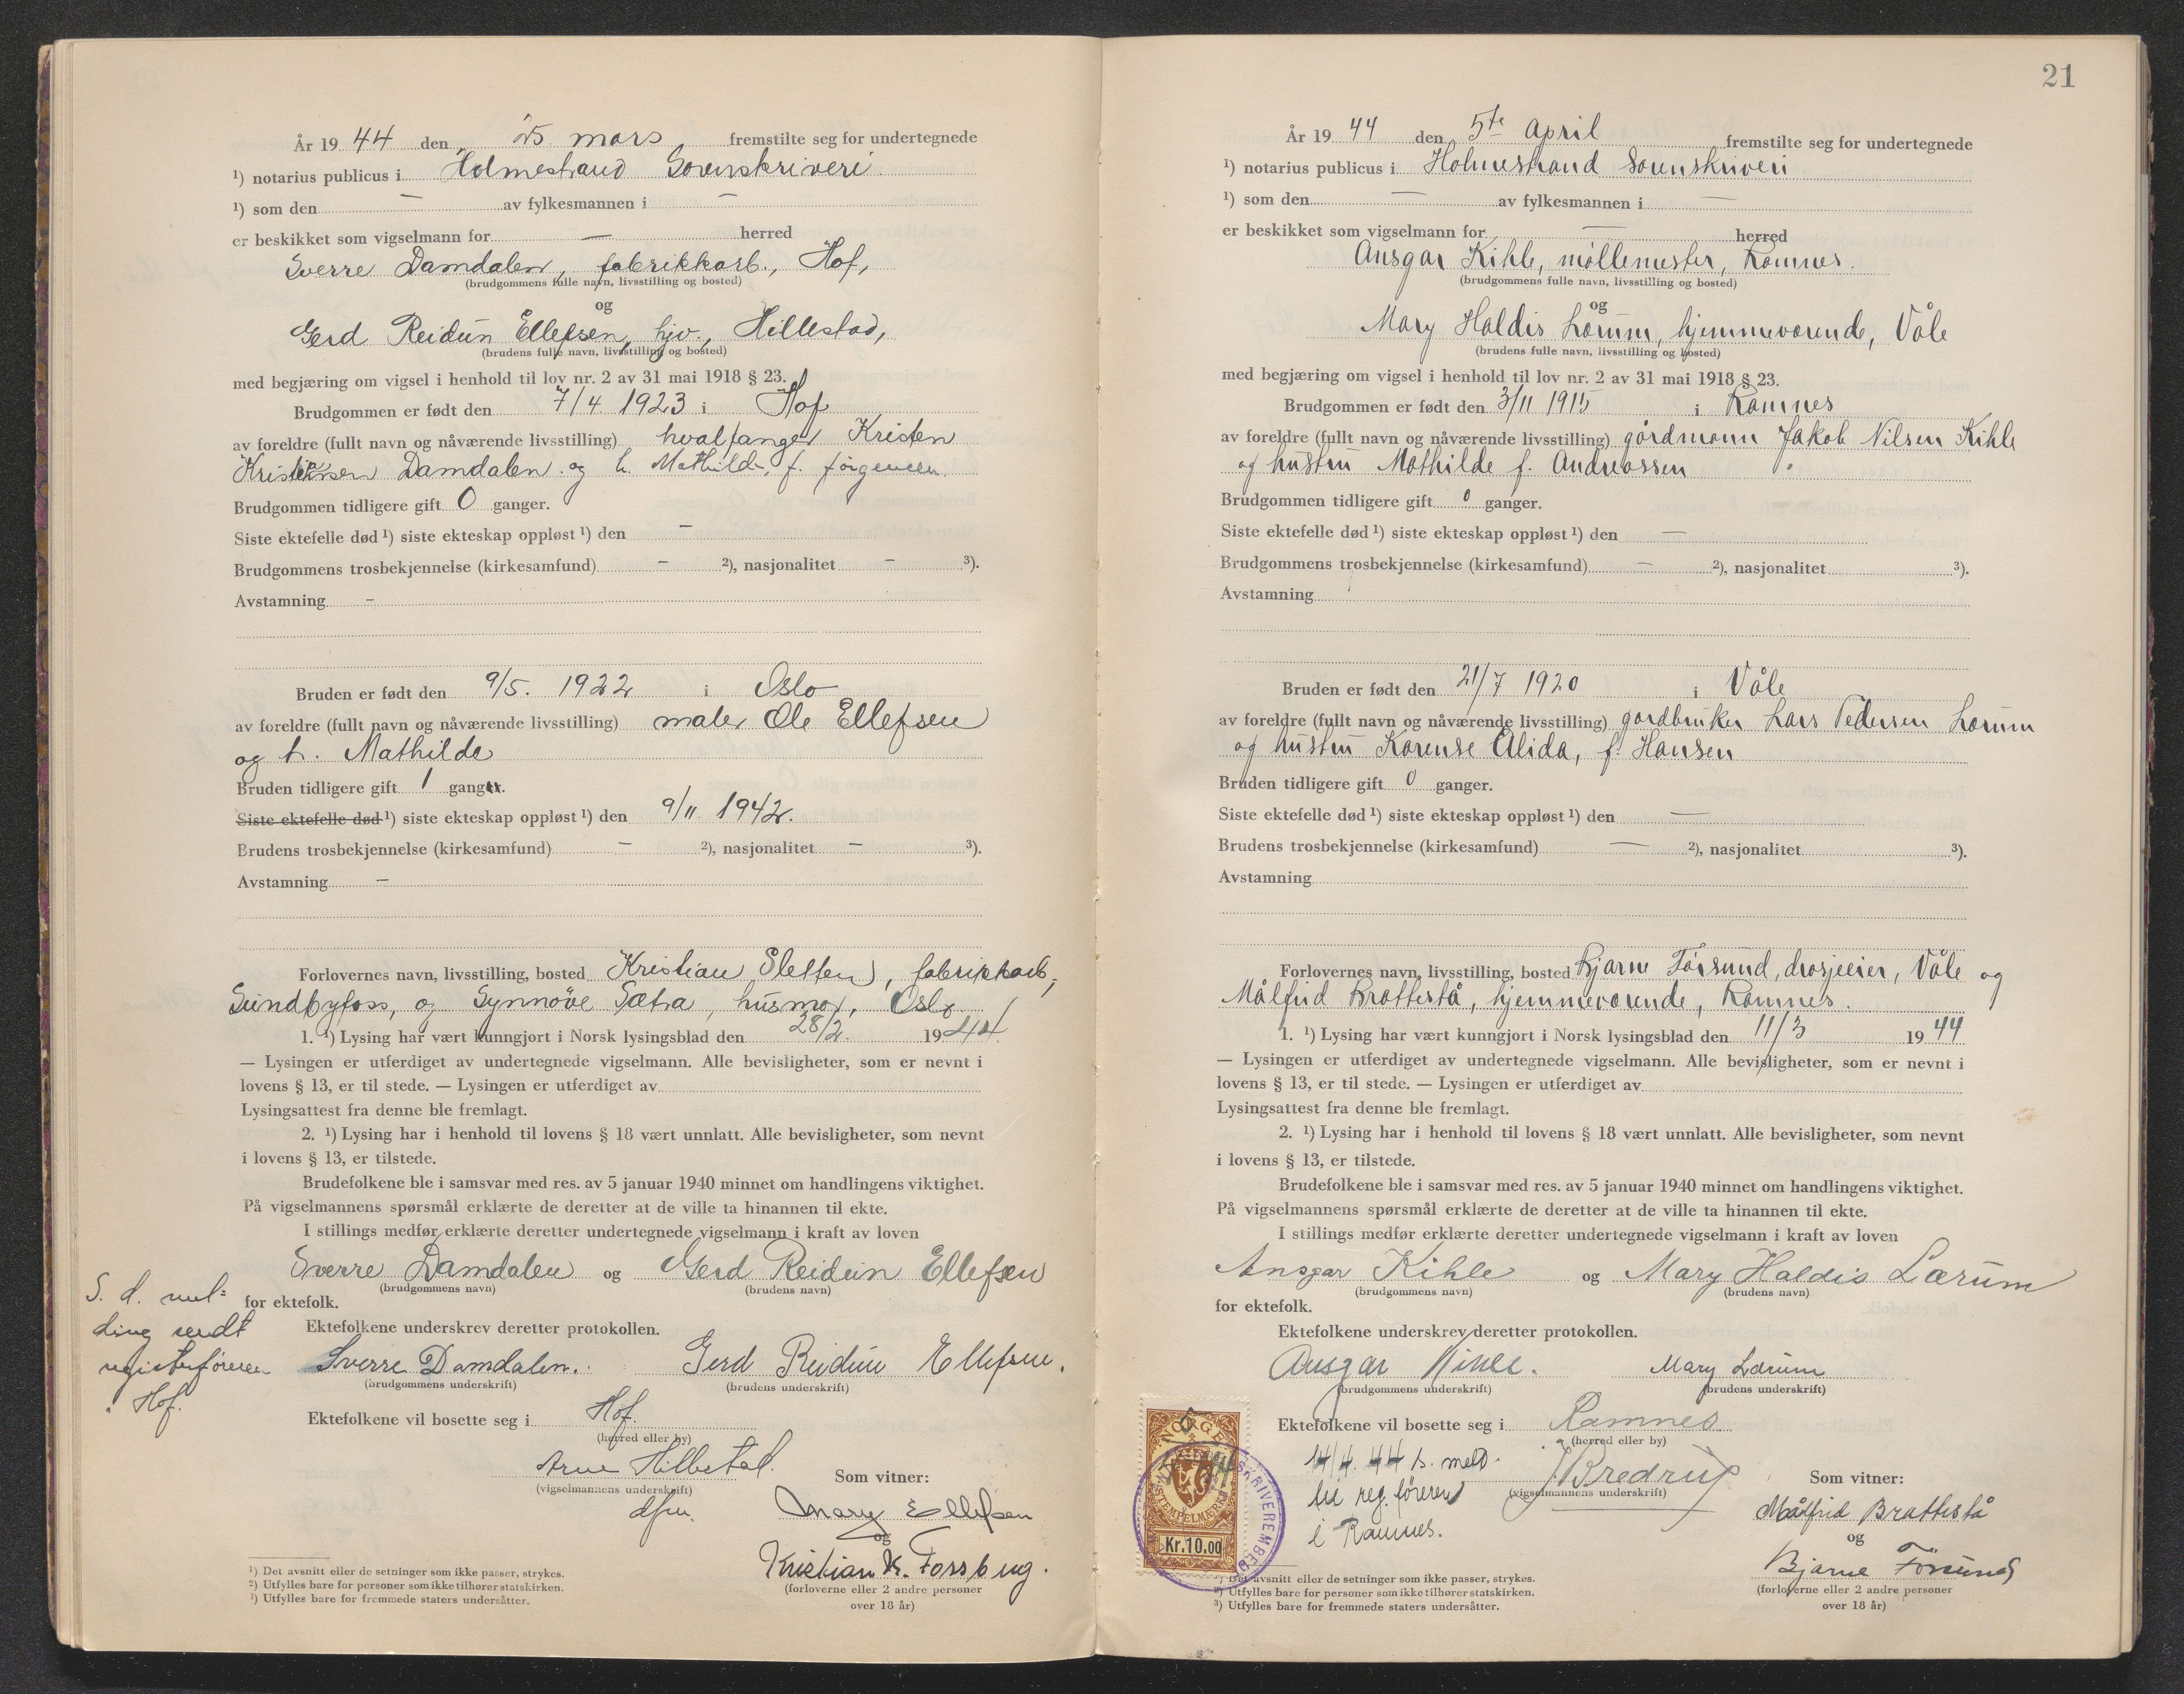 År 19 44 den 25. mars fremstilte seg for undertegnede
¹) notarius publicus i Holmestrand Sorenskriveri
¹) som den — av fylkesmannen i —
er beskikket som vigselmann for — herred
Sverre Damdalen, fabrikkarb., Hof,
(brudgommens fulle navn, livsstilling og bosted)
og
Gerd Reidun Ellefsen, hjv., Hillestad,
(brudens fulle navn, livsstilling og bosted)
med begjæring om vigsel i henhold til lov nr. 2 av 31 mai 1918 § 23.
Brudgommen er født den 7/4 1923 i Hof
av foreldre (fullt navn og nåværende livsstilling) hvalfanger Kristen
Kristensen Damdalen og h. Mathilde, f. Jørgensen.
Brudgommen tidligere gift 0 ganger.
Siste ektefelle død ¹) siste ekteskap oppløst ¹) den —
Brudgommens trosbekjennelse (kirkesamfund) — ²), nasjonalitet — ³).
Avstamning —
Bruden er født den 9/5. 1922 i Oslo
av foreldre (fullt navn og nåværende livsstilling) maler Ole Ellefsen
og h. Mathilde
Bruden tidligere gift 1 ganger.
Siste ektefelle død ¹) siste ekteskap oppløst ¹) den 9/11 1942.
Brudens trosbekjennelse (kirkesamfund) — ²), nasjonalitet — ³).
Avstamning —
Forlovernes navn, livsstilling, bosted Kristian Sletten, fabrikkarb.,
Sundbyfoss, og Synnøve Sætra, husmor, Oslo
1. ¹) Lysing har vært kunngjort i Norsk lysingsblad den 28/2. 1944.
— Lysingen er utferdiget av undertegnede vigselmann. Alle bevisligheter, som er nevnt i
lovens § 13, er til stede. — Lysingen er utferdiget av
Lysingsattest fra denne ble fremlagt.
2. ¹) Lysing har i henhold til lovens § 18 vært unnlatt. Alle bevisligheter, som nevnt
i lovens § 13, er tilstede.
Brudefolkene ble i samsvar med res. av 5 januar 1940 minnet om handlingens viktighet.
På vigselmannens spørsmål erklærte de deretter at de ville ta hinannen til ekte.
I stillings medfør erklærte deretter undertegnede vigselmann i kraft av loven
Sverre Damdalen og Gerd Reidun Ellefsen
(brudgommens navn) (brudens navn)
for ektefolk.
S. d. mel=
ding sendt
registerføreren
i Hof.
Ektefolkene underskrev deretter protokollen.
Sverre Damdalen. Gerd Reidun Ellefsen.
(brudgommens underskrift) (brudens underskrift)
Ektefolkene vil bosette seg i Hof.
(herred eller by)
Arne Hillestad.
(vigselmannens underskrift)
dfm.
Som vitner:
Mary Ellefsen
og
Kristian K. Forsberg.
(forloverne eller 2 andre personer
over 18 år)
¹) Det avsnitt eller de setninger som ikke passer, strykes.
²) Utfylles bare for personer som ikke tilhører statskirken.
³) Utfylles bare for fremmede staters undersåtter.
21
År 19 44 den 5te April fremstilte seg for undertegnede
¹) notarius publicus i Holmestrand Sorenskriveri
¹) som den — av fylkesmannen i —
er beskikket som vigselmann for — herred
Ansgar Kihle, møllemester, Ramnes.
(brudgommens fulle navn, livsstilling og bosted)
og
Mary Haldis Lærum, hjemmeværende, Våle
(brudens fulle navn, livsstilling og bosted)
med begjæring om vigsel i henhold til lov nr. 2 av 31 mai 1918 § 23.
Brudgommen er født den 3/11 1915 i Ramnes
av foreldre (fullt navn og nåværende livsstilling) gårdmann Jakob Nilsen Kihle
og hustru Mathilde f. Andreassen
Brudgommen tidligere gift 0 ganger.
Siste ektefelle død ¹) siste ekteskap oppløst ¹) den —
Brudgommens trosbekjennelse (kirkesamfund) — ²), nasjonalitet ³).
Avstamning
Bruden er født den 21/7 1920 i Våle
av foreldre (fullt navn og nåværende livsstilling) gårdbruker Lars Pedersen Lærum
og hustru Karense Alida, f. Hansen
Bruden tidligere gift 0 ganger.
Siste ektefelle død ¹) siste ekteskap oppløst ¹) den —
Brudens trosbekjennelse (kirkesamfund) — ²), nasjonalitet ³).
Avstamning
Forlovernes navn, livsstilling, bosted Bjarne Førsund, drosjeeier, Våle og
Målfrid Brattestå, hjemmeværende, Ramnes.
1. ¹) Lysing har vært kunngjort i Norsk lysingsblad den 11/3 19 44
— Lysingen er utferdiget av undertegnede vigselmann. Alle bevisligheter, som er nevnt i
lovens § 13, er til stede. — Lysingen er utferdiget av
Lysingsattest fra denne ble fremlagt.
2. ¹) Lysing har i henhold til lovens § 18 vært unnlatt. Alle bevisligheter, som nevnt
i lovens § 13, er tilstede.
Brudefolkene ble i samsvar med res. av 5 januar 1940 minnet om handlingens viktighet.
På vigselmannens spørsmål erklærte de deretter at de ville ta hinannen til ekte.
I stillings medfør erklærte deretter undertegnede vigselmann i kraft av loven
Ansgar Kihle og Mary Haldis Lærum
(brudgommens navn) (brudens navn)
for ektefolk.
Ektefolkene underskrev deretter protokollen.
Ansgar Kihle. Mary Lærum
(brudgommens underskrift) (brudens underskrift)
Ektefolkene vil bosette seg i Ramnes
(herred eller by)
14/4. 44 s. meld.
til reg.føreren
i Ramnes.
J Bredrup
(vigselmannens underskrift)
NORGE
STEMPELMERKE
Kr.10.00
SKRIVEREMBED
Som vitner:
Målfrid Brattestå
og
Bjarne Førsund
(forloverne eller 2 andre personer
over 18 år)
¹) Det avsnitt eller de setninger som ikke passer, strykes.
²) Utfylles bare for personer som ikke tilhører statskirken.
³) Utfylles bare for fremmede staters undersåtter.